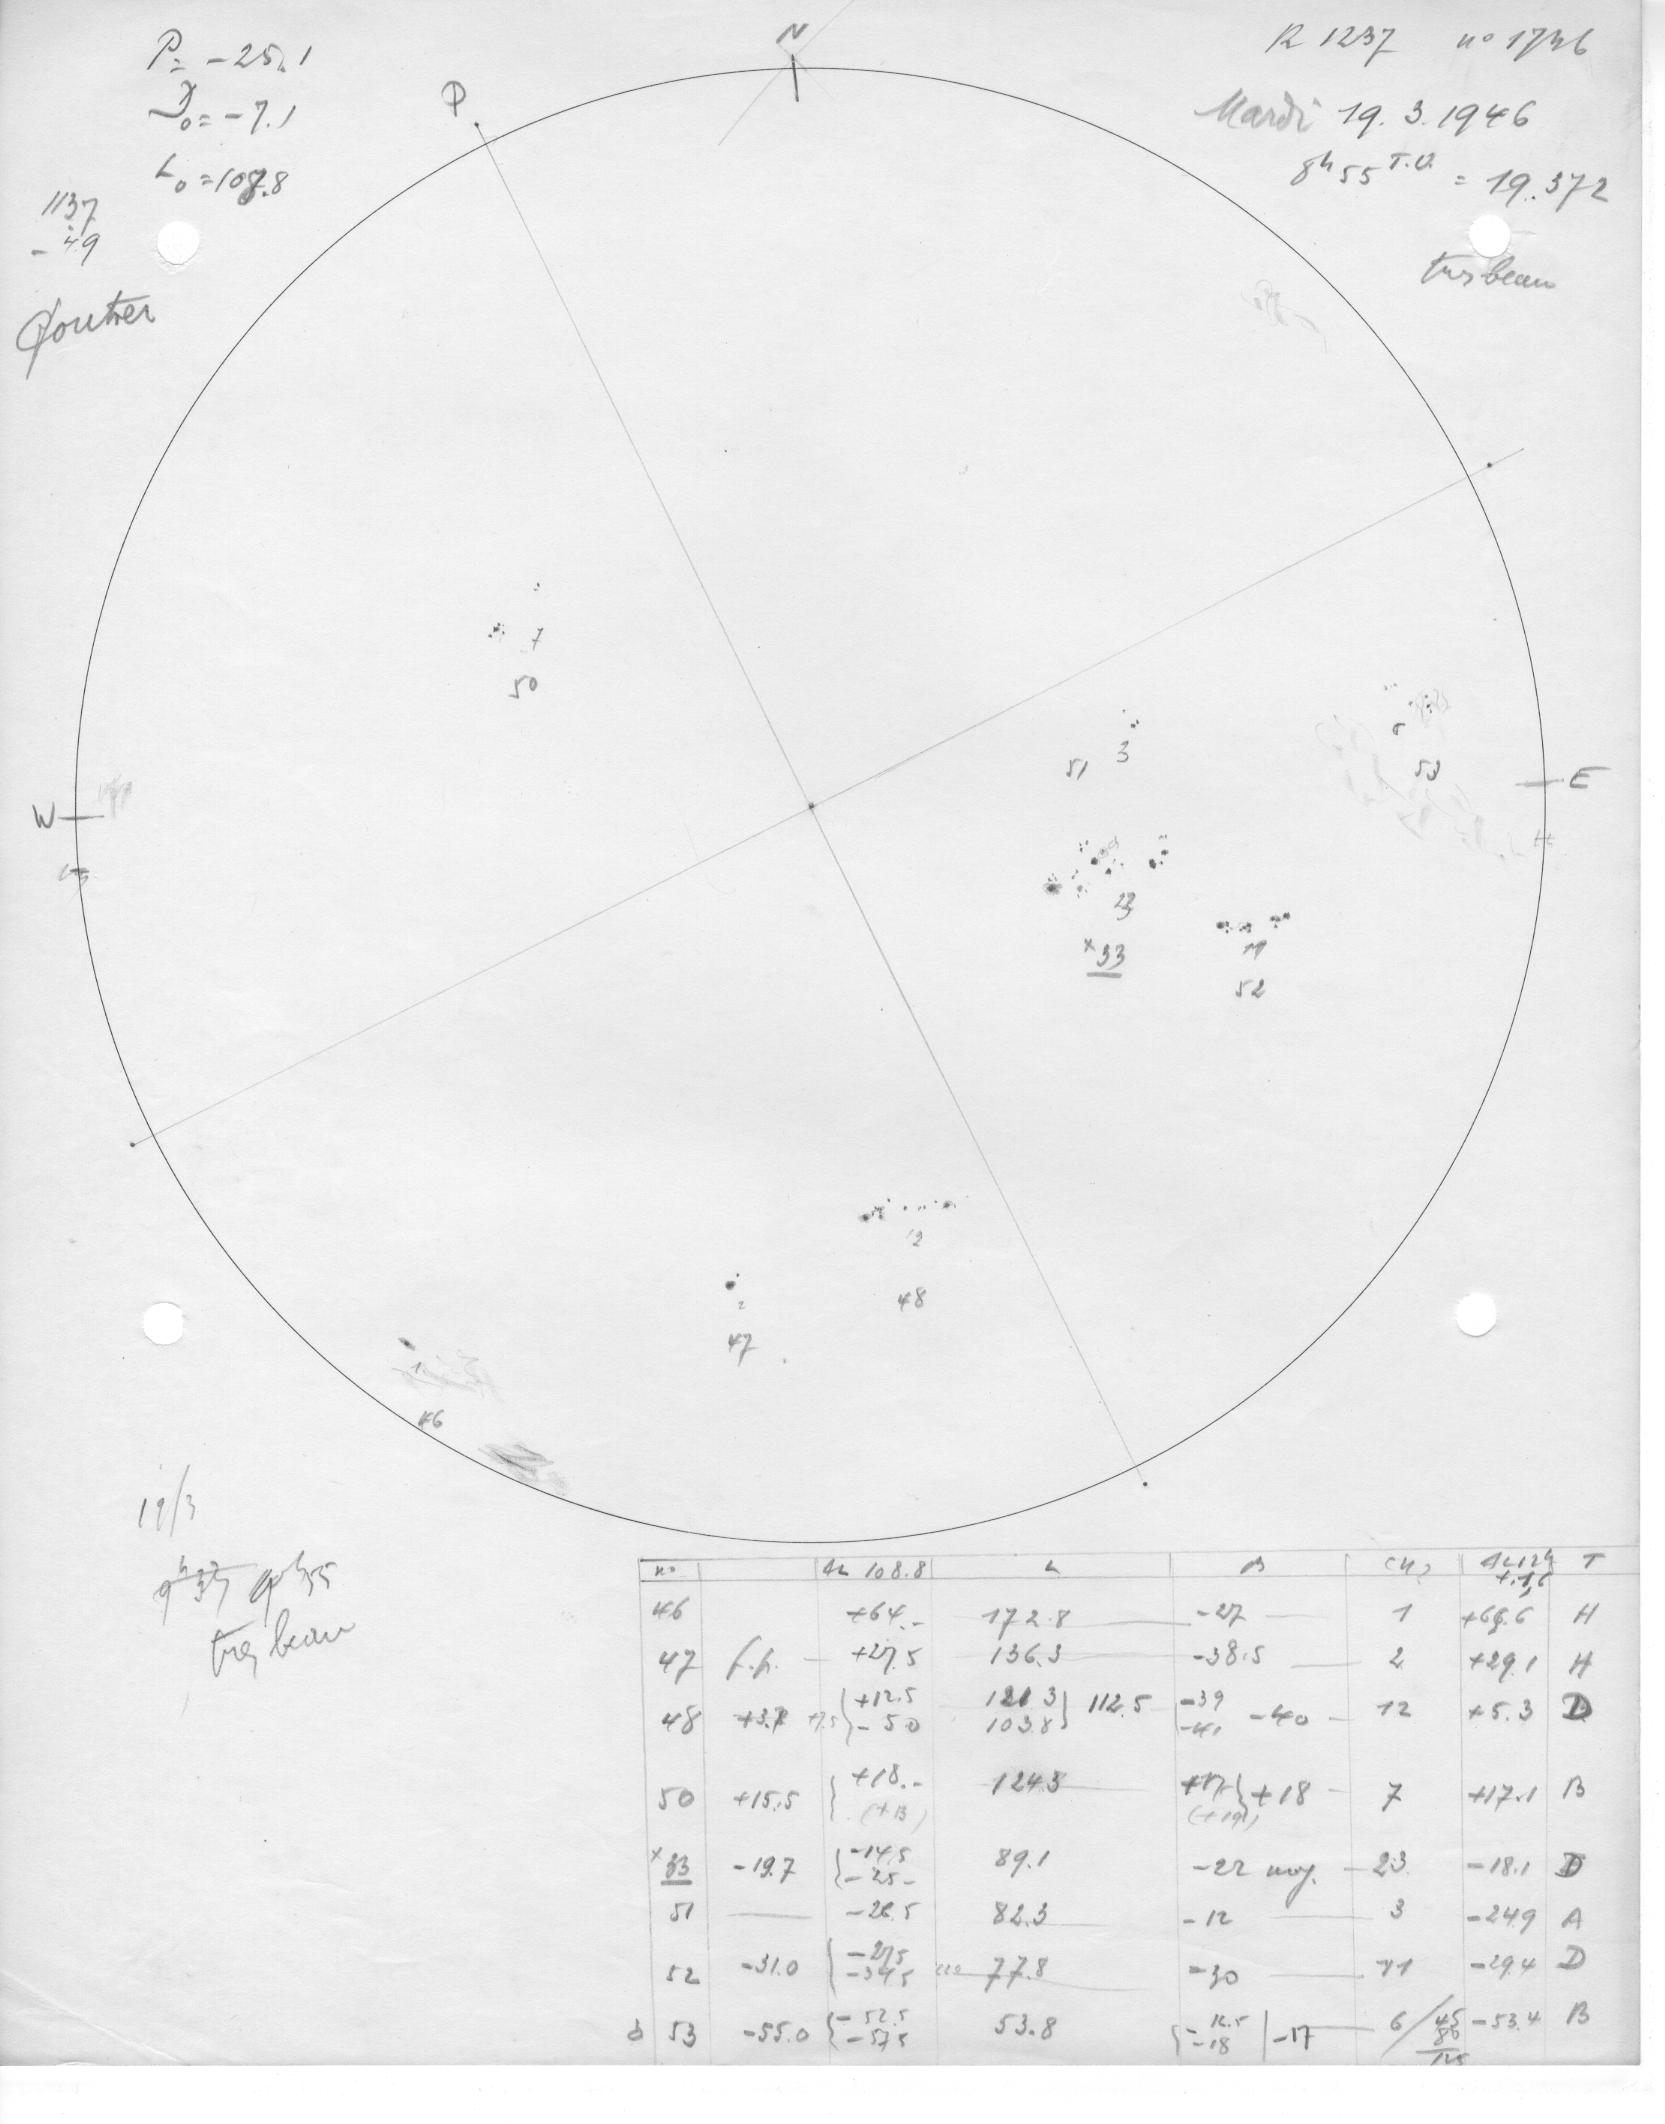 P = -25.1
D₀ = -7.1
L₀ = 108.8
1137
- 49
N
P
R 1237 n° 1746
Mardi 19. 3. 1946
8h 55 T.U. = 19.372
tres beau
7
50
51 3
6
53
W
E
23
x 33
11
52
12
48
2
47
46
19/3
9h 55
tres beau
n° ΔL 108.8 L B T
46 +64.- 172.8 -27 1 +65.6 H
47 f.p. +27.5 136.3 -38.5 2 +29.1 H
48 +3.7 { +12.5 - 5.0 121.3 103.8 } 112.5 -39 -41 -40 12 +5.3 D
50 +15.5 { +18.- (+13) 124.3 +17 (+19) } +18 7 +17.1 B
x 33 -19.7 { -14.5 -25- 89.1 -22 moy. 23 -18.1 D
51 -26.5 82.3 -12 3 -24.9 A
52 -31.0 { -27.5 -34.5 77.8 -30 11 -29.4 D
53 -55.0 { -52.5 -57.5 53.8 { -16.5 -18 | -17 6 / 45 80 125 -53.4 B